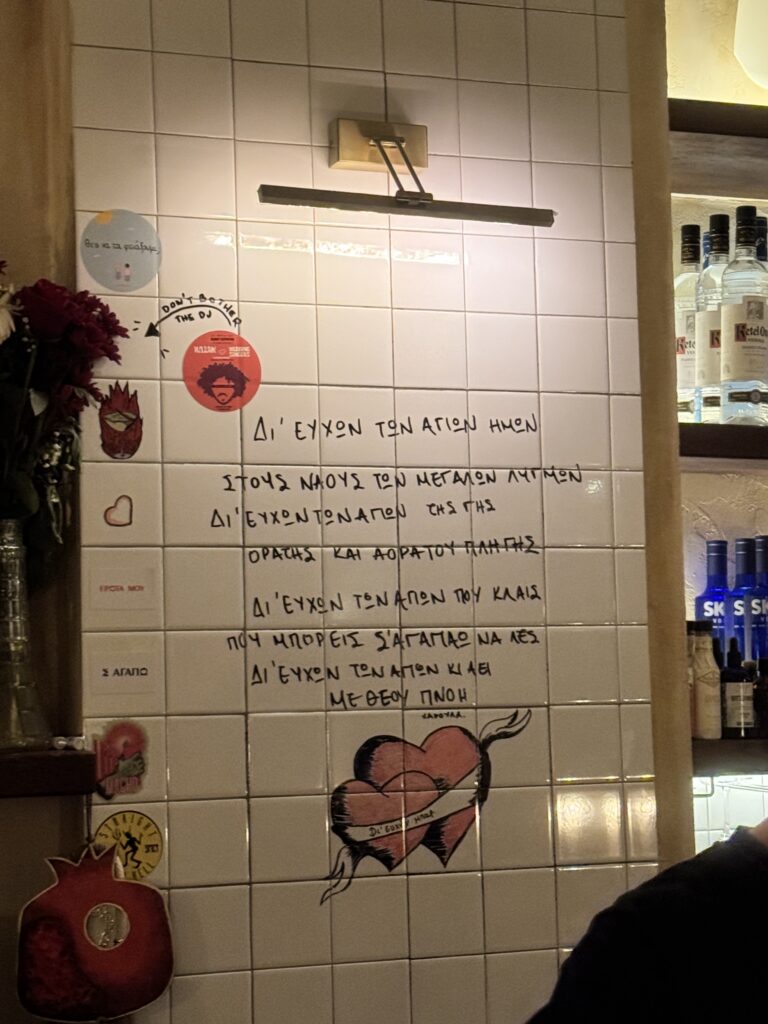 θεσ να τα φτιάξουμε;
DON'T BOTHER
THE DJ
ΔΙ' ΕΥΧΩΝ ΤΩΝ ΑΓΙΩΝ ΗΜΩΝ
ΣΤΟΥΣ ΝΑΟΥΣ ΤΩΝ ΜΕΓΑΛΩΝ ΛΥΓΜΩΝ
ΔΙ' ΕΥΧΩΝ ΤΩΝ ΑΓΙΩΝ ΤΗΣ ΓΗΣ
ΟΡΑΤΗΣ ΚΑΙ ΑΟΡΑΤΟΥ ΠΛΗΓΗΣ
ΔΙ' ΕΥΧΩΝ ΤΩΝ ΑΓΙΩΝ ΠΟΥ ΚΛΑΙΣ
ΠΟΥ ΜΠΟΡΕΙΣ Σ'ΑΓΑΠΑΩ ΝΑ ΛΕΣ
ΔΙ' ΕΥΧΩΝ ΤΩΝ ΑΓΙΩΝ ΚΙ ΑΕΙ
ΜΕ ΘΕΟΥ ΠΝΟΗ
ΕΡΩΤΑ ΜΟΥ
Σ ΑΓΑΠΩ
STRAIGHT
HELL
Ketel One
Ketel
SK
SK